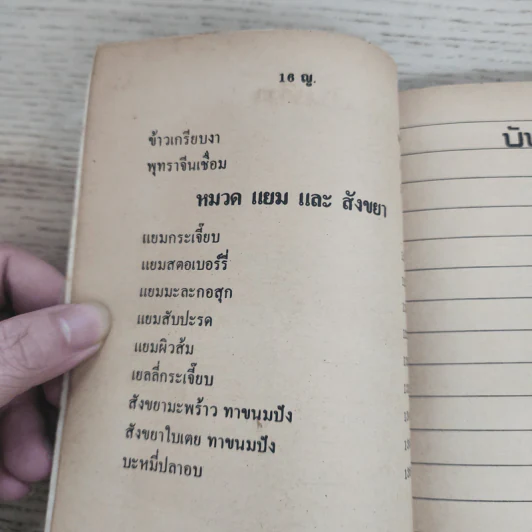 16 ญ.
ข้าวเกรียบงา
พุทราจีนเชื่อม
หมวด แยม และ สังขยา
แยมกระเจี๊ยบ
แยมสตอเบอร์รี่
แยมมะละกอสุก
แยมสับปะรด
แยมผิวส้ม
เยลลี่กระเจี๊ยบ
สังขยามะพร้าว ทาขนมปัง
สังขยาใบเตย ทาขนมปัง
บะหมี่ปลาอบ